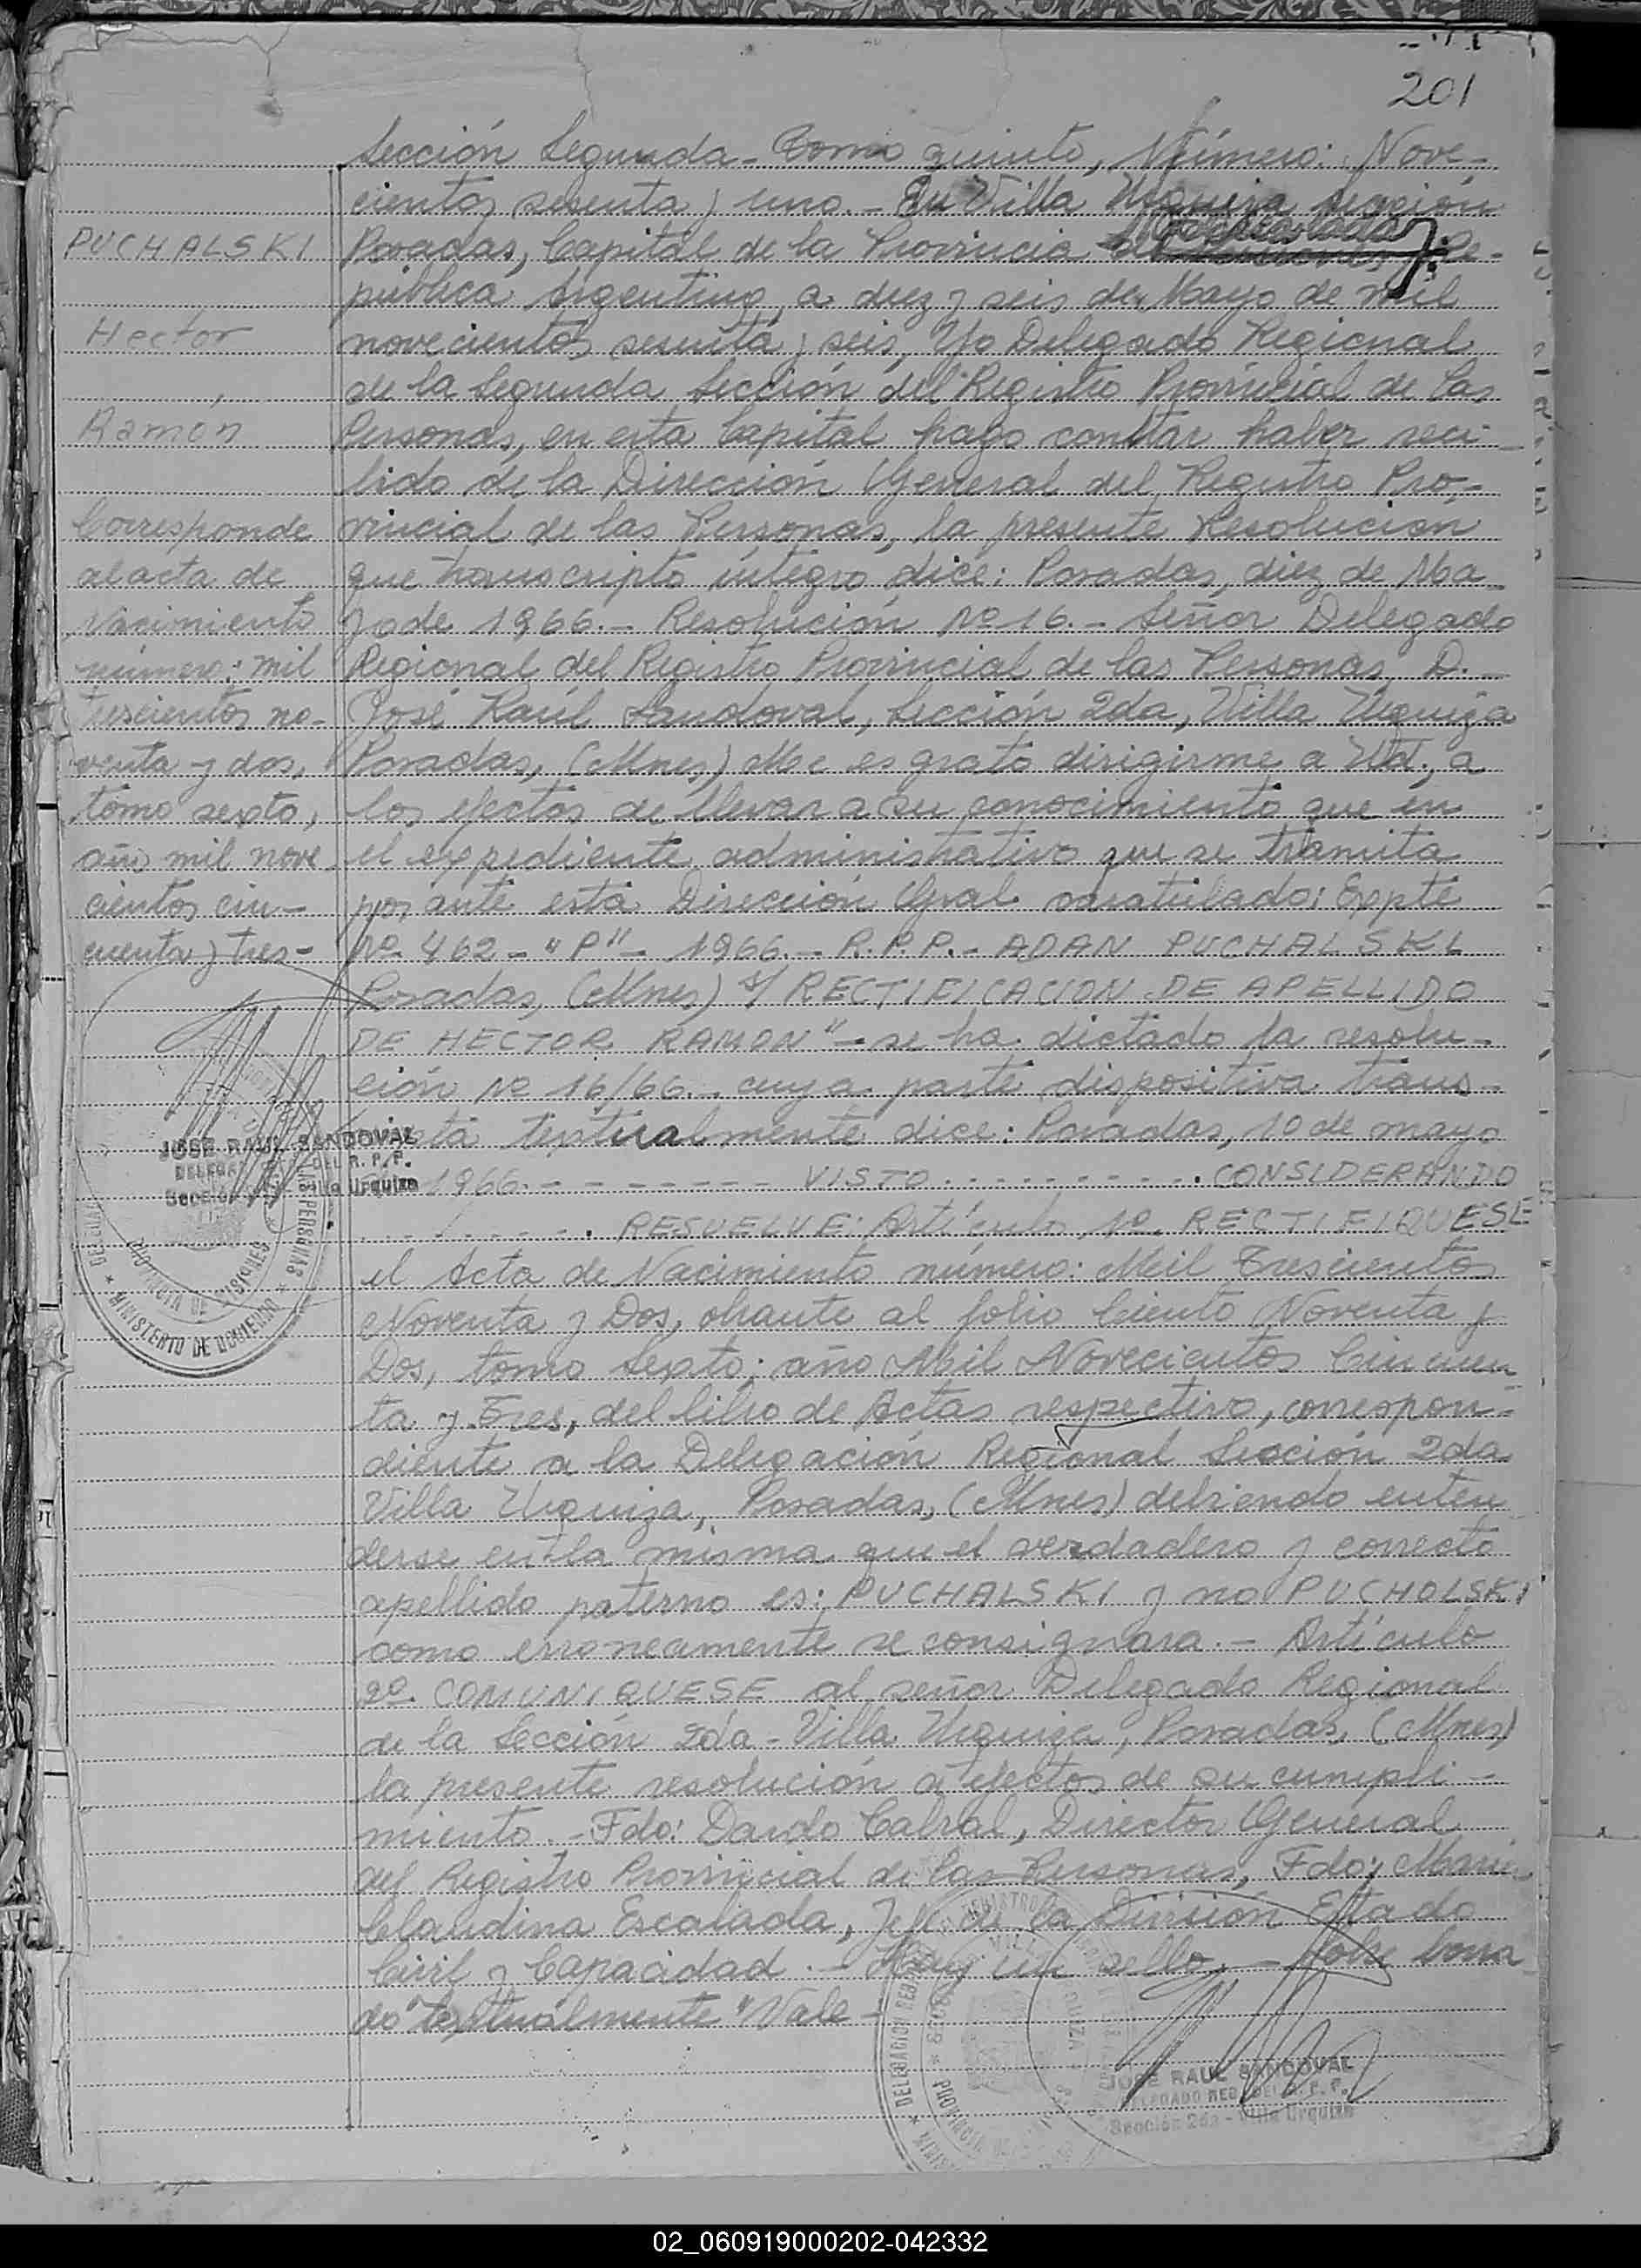 201
Sección Segunda - Tomo quinto, Número: Nove-
cientos sesenta y uno. - En Villa Urquiza Sección
PUCHALSKI
Posadas, Capital de la Provincia de Misiones, Re-
pública Argentina, a diez y seis de Mayo de mil
Hector
novecientos sesenta y seis, Yo Delegado Regional
de la Segunda Sección del Registro Provincial de las
Ramón
Personas, en esta Capital hago constar haber reci-
bido de la Dirección General del Registro Pro-
Corresponde
vincial de las Personas, la presente Resolución
al acta de
que transcripto íntegro dice: Posadas, diez de Ma
Nacimiento
yo de 1966. - Resolución Nº 16. - Señor Delegado
número: mil
Regional del Registro Provincial de las Personas D. -
trescientos no-
José Raúl Sandoval, Sección 2da, Villa Urquiza
venta y dos,
Posadas, (Mnes) Me es grato dirigirme a Ud., a
tomo sexto,
los efectos de llevar a su conocimiento que en
año mil nove
el expediente administrativo que se tramita
cientos cin-
por ante esta Dirección Gral caratulado: Expte
cuenta y tres-
Nº 462 - "P" - 1966. - R.P.P. - ADAN PUCHALSKI
Posadas, (Mnes) s/ RECTIFICACION DE APELLIDO
DE HECTOR RAMON" - se ha dictado la resolu-
ción Nº 16/66. - cuya parte dispositiva trans-
cripta textualmente dice: Posadas, 10 de mayo
JOSE RAUL SANDOVAL
DEL R. P. P.
Villa Urquiza
1966. - - - - - - - - VISTO . . . . . . . . . . CONSIDERANDO
. . . . . . . . . RESUELVE: Artículo 1º. RECTIFIQUESE
el Acta de Nacimiento número: Mil Trescientos
Noventa y Dos, obrante al folio Ciento Noventa y
PROVINCIA DE MISIONES
MINISTERIO DE GOBIERNO
Dos, tomo Sexto; año Mil Novecientos Cincuen
ta y Tres, del libro de Actas respectivo, correspon-
diente a la Delegación Regional Sección 2da
Villa Urquiza, Posadas, (Mnes) debiendo enten
derse en la misma que el verdadero y correcto
apellido paterno es: PUCHALSKI y no PUCHOLSKI
como erroneamente se consignara. - Artículo
2º. COMUNIQUESE al señor Delegado Regional
de la Sección 2da - Villa Urquiza, Posadas, (Mnes)
la presente resolución a efectos de su cumpli-
miento. - Fdo: Dardo Cabral, Director General
del Registro Provincial de las Personas, Fdo: Maria
Claudina Escalada, Jefe de la División Estado
Civil y Capacidad. - Hay un sello. - Sobre borra
do "textualmente" Vale -
JOSE RAUL SANDOVAL
DELEGADO REG. DEL R. P. P.
Sección 2da - Villa Urquiza
02_060919000202-042332